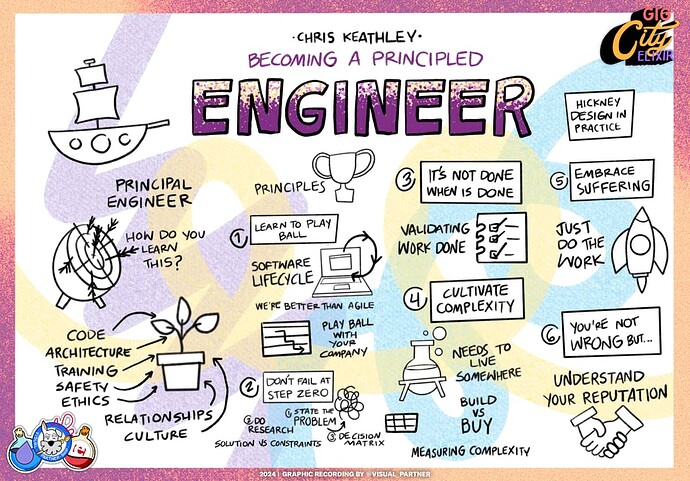 ·CHRIS KEATHLEY·
BECOMING A PRINCIPLED
ENGINEER
GIG
City
ELIXIR
HICKNEY
DESIGN IN
PRACTICE
PRINCIPAL
ENGINEER
HOW DO YOU
LEARN
THIS?
CODE
ARCHITECTURE
TRAINING
SAFETY
ETHICS
RELATIONSHIPS
CULTURE
PRINCIPLES
1 LEARN TO PLAY
BALL
SOFTWARE
LIFECYCLE
WE'RE BETTER THAN AGILE
PLAY BALL
WITH
YOUR
COMPANY
2 DON'T FAIL AT
STEP ZERO
1 STATE THE
PROBLEM
2 DO
RESEARCH
SOLUTION VS CONSTRAINTS
3 DECISION
MATRIX
3 IT'S NOT DONE
WHEN IS DONE
VALIDATING
WORK DONE
4 CULTIVATE
COMPLEXITY
NEEDS TO
LIVE
SOMEWHERE
BUILD
VS
BUY
MEASURING COMPLEXITY
5 EMBRACE
SUFFERING
JUST
DO THE
WORK
6 YOU'RE NOT
WRONG BUT...
UNDERSTAND
YOUR REPUTATION
2024 | GRAPHIC RECORDING BY @VISUAL_PARTNER